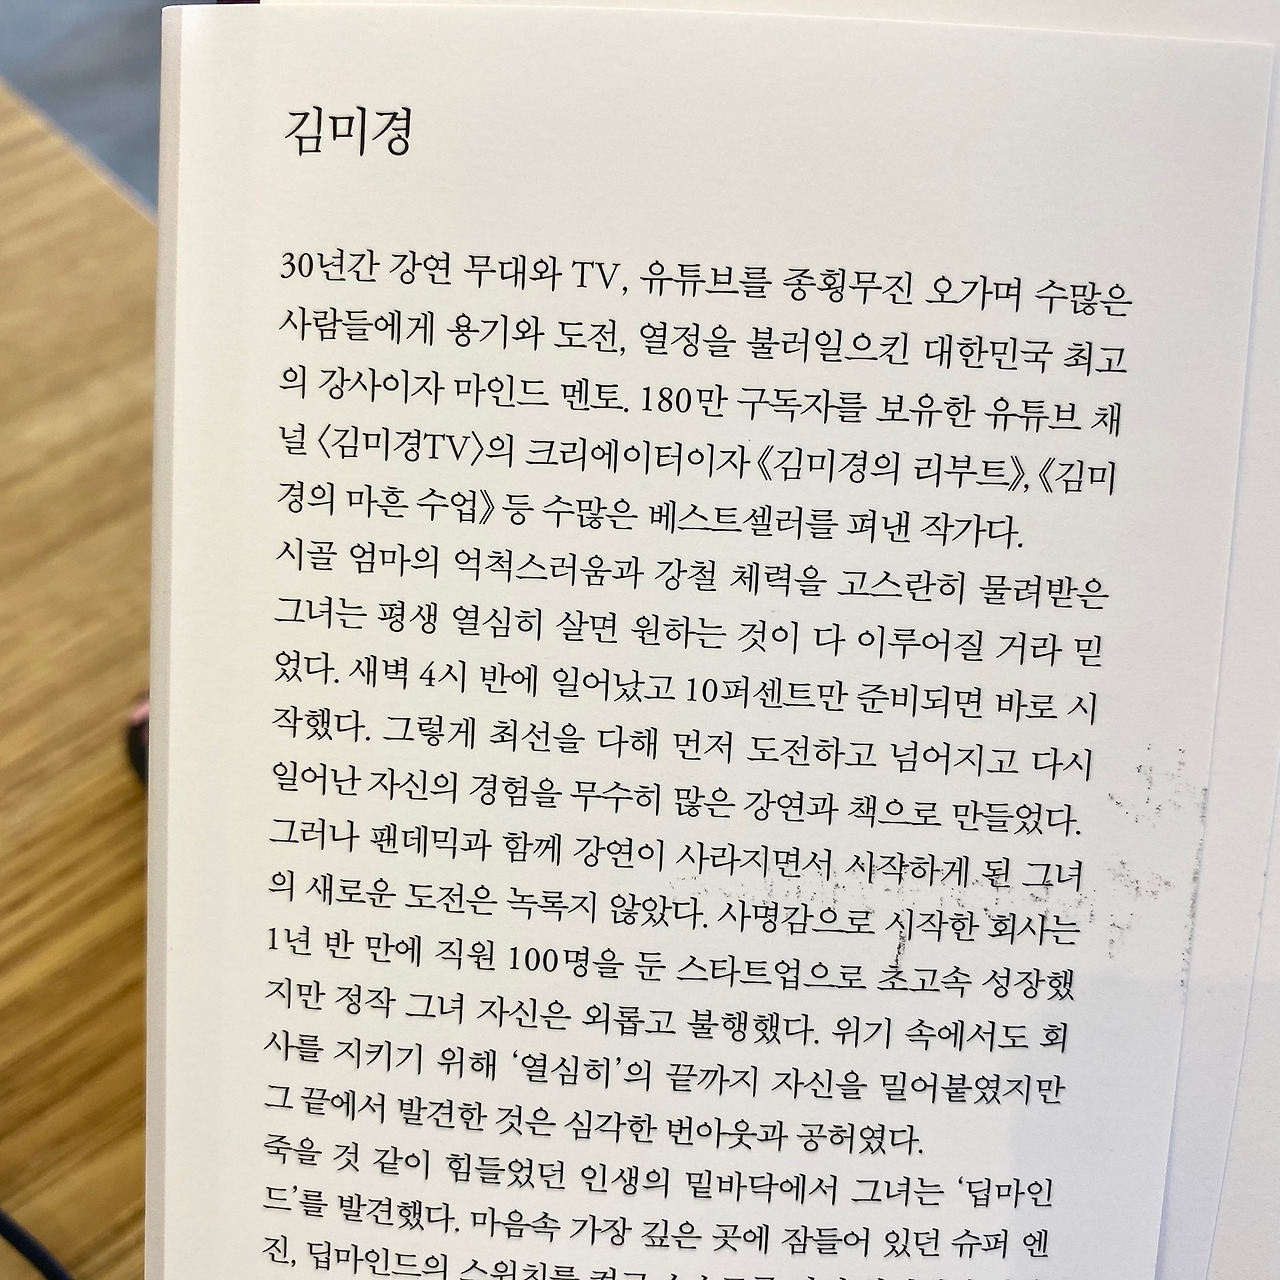 김미경
30년간 강연 무대와 TV, 유튜브를 종횡무진 오가며 수많은
사람들에게 용기와 도전, 열정을 불러일으킨 대한민국 최고
의 강사이자 마인드 멘토. 180만 구독자를 보유한 유튜브 채
널 〈김미경TV〉의 크리에이터이자 《김미경의 리부트》, 《김미
경의 마흔 수업》 등 수많은 베스트셀러를 펴낸 작가다.
시골 엄마의 억척스러움과 강철 체력을 고스란히 물려받은
그녀는 평생 열심히 살면 원하는 것이 다 이루어질 거라 믿
었다. 새벽 4시 반에 일어났고 10퍼센트만 준비되면 바로 시
작했다. 그렇게 최선을 다해 먼저 도전하고 넘어지고 다시
일어난 자신의 경험을 무수히 많은 강연과 책으로 만들었다.
그러나 팬데믹과 함께 강연이 사라지면서 시작하게 된 그녀
의 새로운 도전은 녹록지 않았다. 사명감으로 시작한 회사는
1년 반 만에 직원 100명을 둔 스타트업으로 초고속 성장했
지만 정작 그녀 자신은 외롭고 불행했다. 위기 속에서도 회
사를 지키기 위해 ‘열심히’의 끝까지 자신을 밀어붙였지만
그 끝에서 발견한 것은 심각한 번아웃과 공허였다.
죽을 것 같이 힘들었던 인생의 밑바닥에서 그녀는 ‘딥마인
드’를 발견했다. 마음속 가장 깊은 곳에 잠들어 있던 슈퍼 엔
진, 딥마인드의 스위치를 켜고